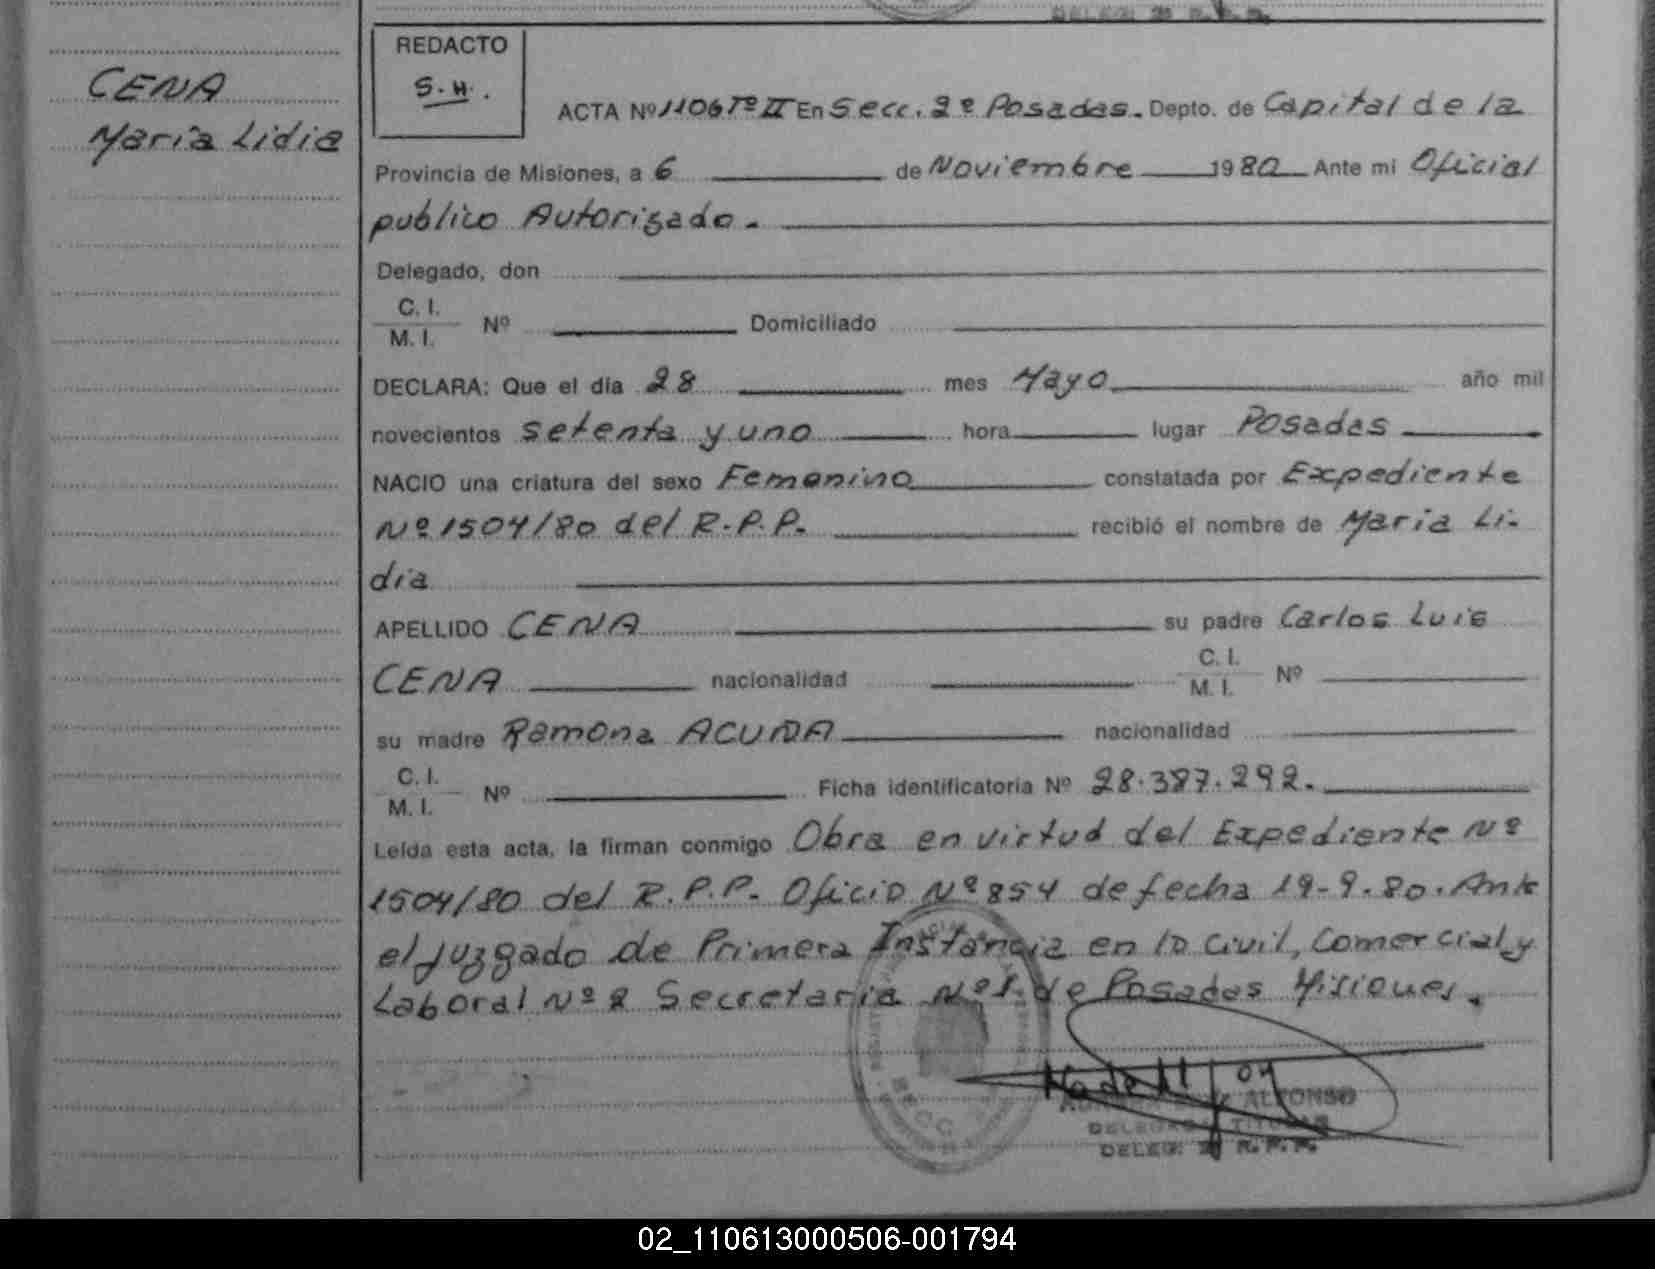 DELEG. 2ª R.P.P.
CENA
María Lidia
REDACTO
S.H.
ACTA Nº 1106 Tº II En Secc. 2ª Posadas. Depto. de Capital de la
Provincia de Misiones, a 6 de Noviembre 1980 Ante mi Oficial
publico Autorizado.
Delegado, don
C. I.
M. I. Nº Domiciliado
DECLARA: Que el día 28 mes Mayo año mil
novecientos setenta y uno hora lugar Posadas
NACIO una criatura del sexo Femenino constatada por Expediente
Nº 1504/80 del R.P.P. recibió el nombre de María Li-
dia
APELLIDO CENA su padre Carlos Luis
CENA nacionalidad C. I. M. I. Nº
su madre Ramona ACUÑA nacionalidad
C. I.
M. I. Nº Ficha identificatoria Nº 28.387.292.
Leída esta acta, la firman conmigo Obra en virtud del Expediente Nº
1504/80 del R.P.P. Oficio Nº 854 de fecha 19-9-80. Ante
el Juzgado de Primera Instancia en lo Civil, Comercial y
Laboral Nº 2 Secretaria Nº 1 de Posadas Misiones.
SECC.
ALFONSO
DELEGADA TITULAR
DELEG. 2ª R.P.P.
02_110613000506-001794